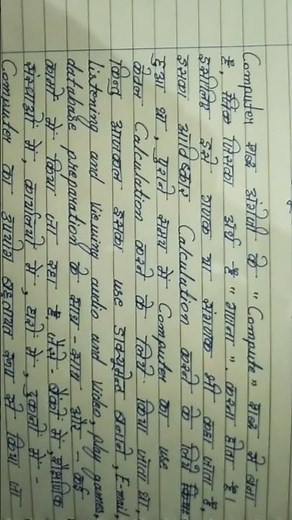 Computer शब्द अंग्रेजी के "Compute" शब्द से बना
है, जिसका अर्थ है "गणना". करना होता है।
इसीलिए इसे गणक या संगणक भी कहा जाता है,
इसका अविष्कार Calculation करने के लिये
हुआ था, पुराने समय में Computer का use
केवल Calculation करने के लिये किया जाता था,
किन्तु आजकल इसका use डाक्यूमेन्ट बनाने, E-mail,
listening and viewing audio and video, play games,
database preparation के साथ-साथ और कई
कामों में किया जा रहा है जैसे बैंकों में, शैक्षणिक
संस्थाओं में, कार्यालयों में, घरों में, दुकानों में -
Computer का उपयोग बहुतायत रूप से किया जा